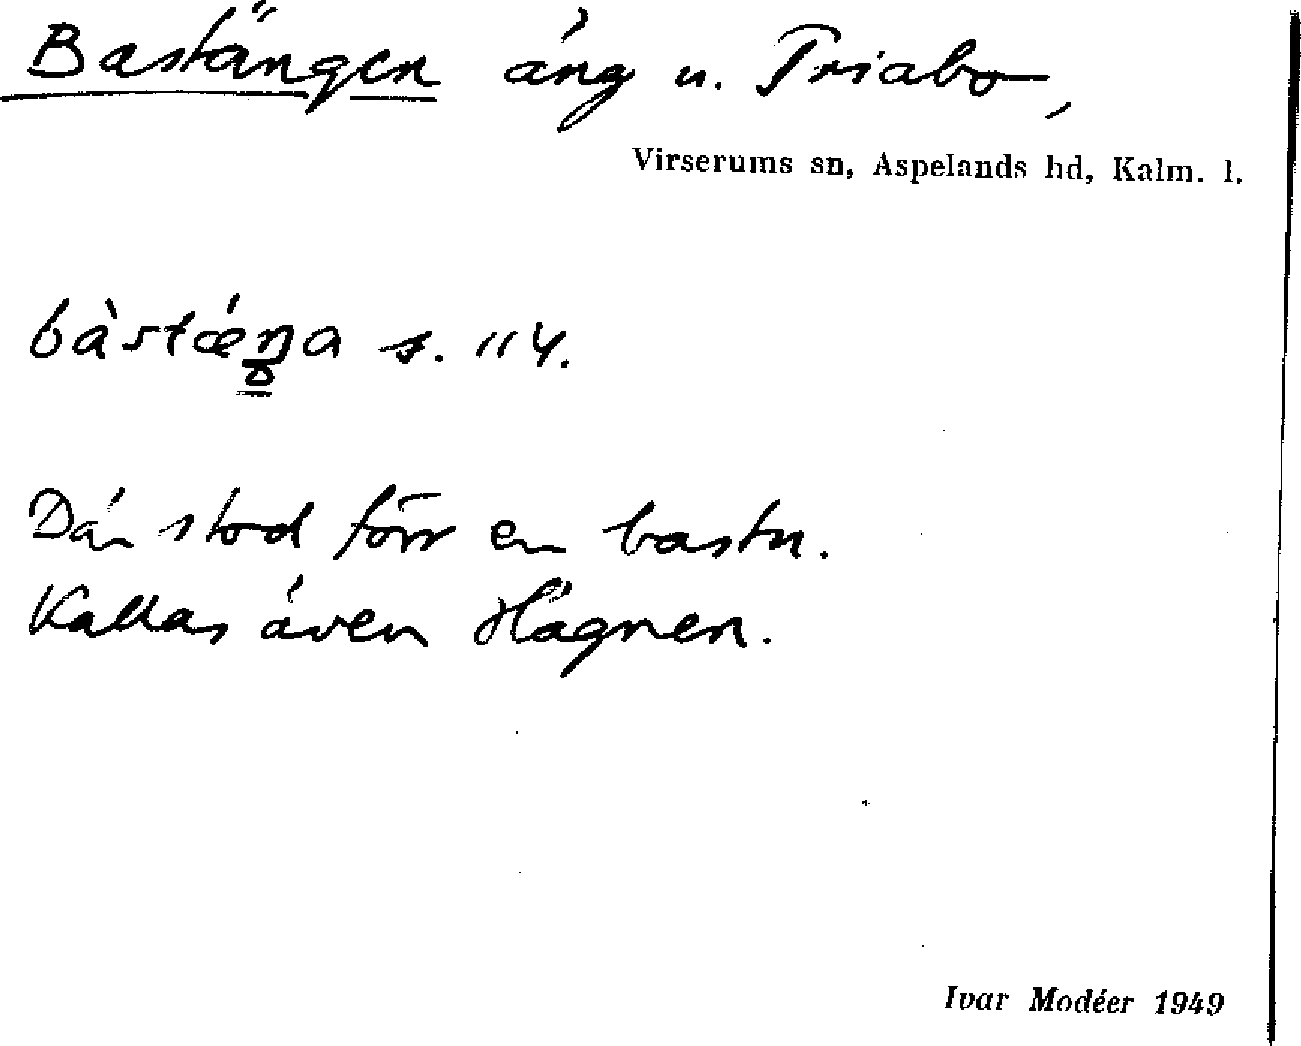 Bastängen äng u. Triabo,
Virserums sn, Aspelands hd, Kalm. l.
bàstǽŋa s. 114.
Där stod förr en bastu.
Kallas även Hägnen.
Ivar Modéer 1949